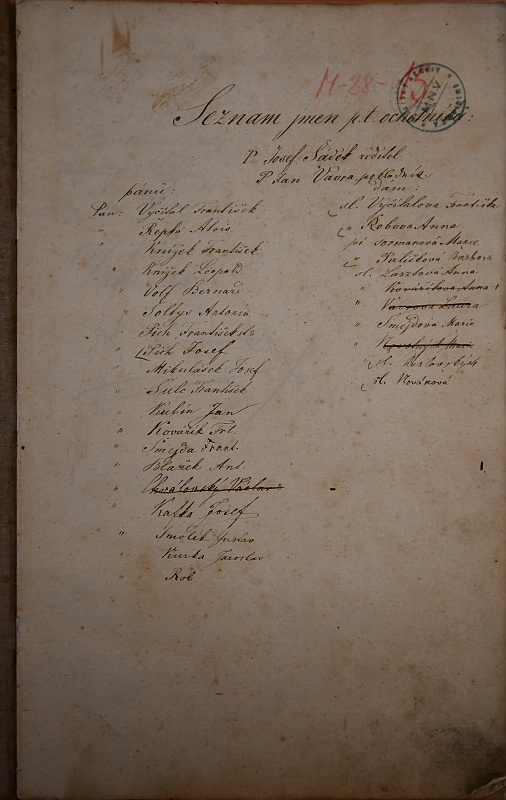 H-28-15
Seznam jmen p.t. ochotníků:
P. Josef Sádek ředitel
P. Jan Vávra pokladník.
pánů:
Pan: Vyšťal František
" Řepka Alois
Knížek František
" Knížek Leopold
" Volf Bernard
" Šoltys Antonín
" Pich František st.
" Pich Josef
" Mikulášek Josef
" Šulc František
" Kubín Jan
" Kovářík Frt.
" Smejda Frant.
" Blažek Ant.
" Chválovský Václav
" Kafka Josef
" Smolík Gustav
" Kurka Jaroslav
Rob
dam:
sl. Vyšťalova Františka
" Robova Anna
pí Formanová Marie
" Paličková Barbora
sl. Lasztová Anna
" Kováříkova Anna
" Vávrova Laura
" Smejdova Marie
"
" sl. Chválovských
sl. Nováková